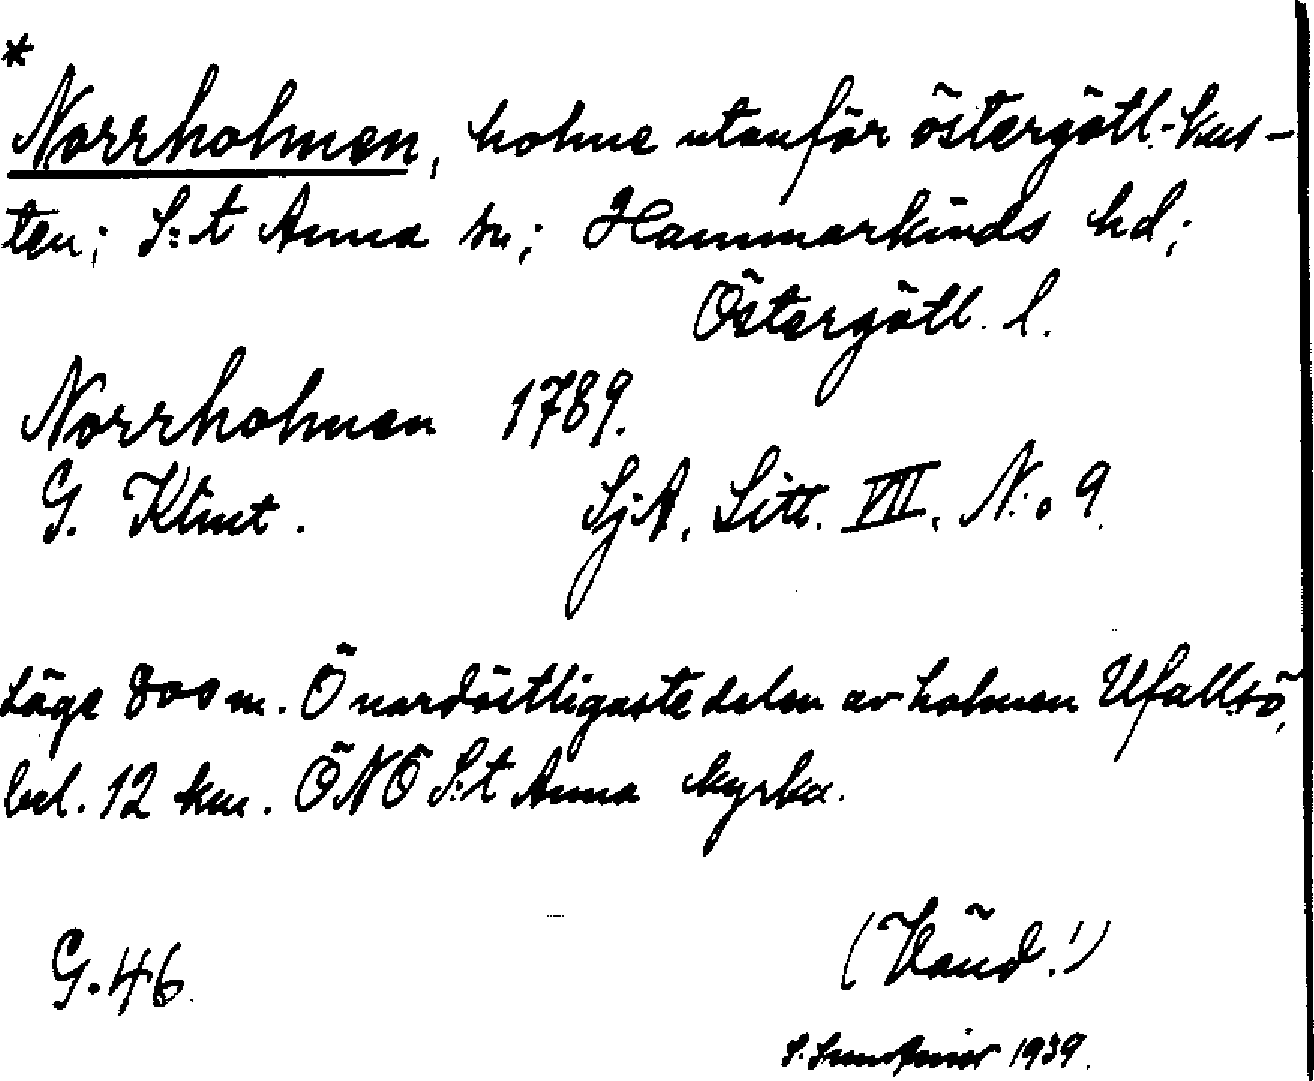 *
Norrholmen, holme utanför östergötl.-kus-
ten; S:t Anna sn; Hammarkinds hd;
Östergötl. l.
Norrholmen 1789.
G. Klint. SjA, Litt. VII, N:o 9.
Läge 800 m. Ö nordöstligaste delen av holmen Ufallsö,
bel. 12 km. ÖNÖ S:t Anna kyrka.
G.46. (Vänd!)
S. 1939.